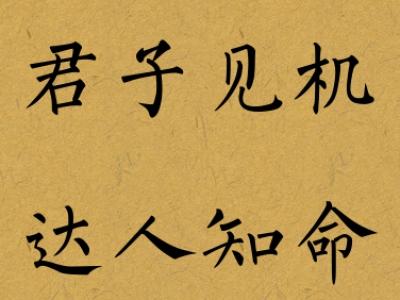 君子见机
达人知命